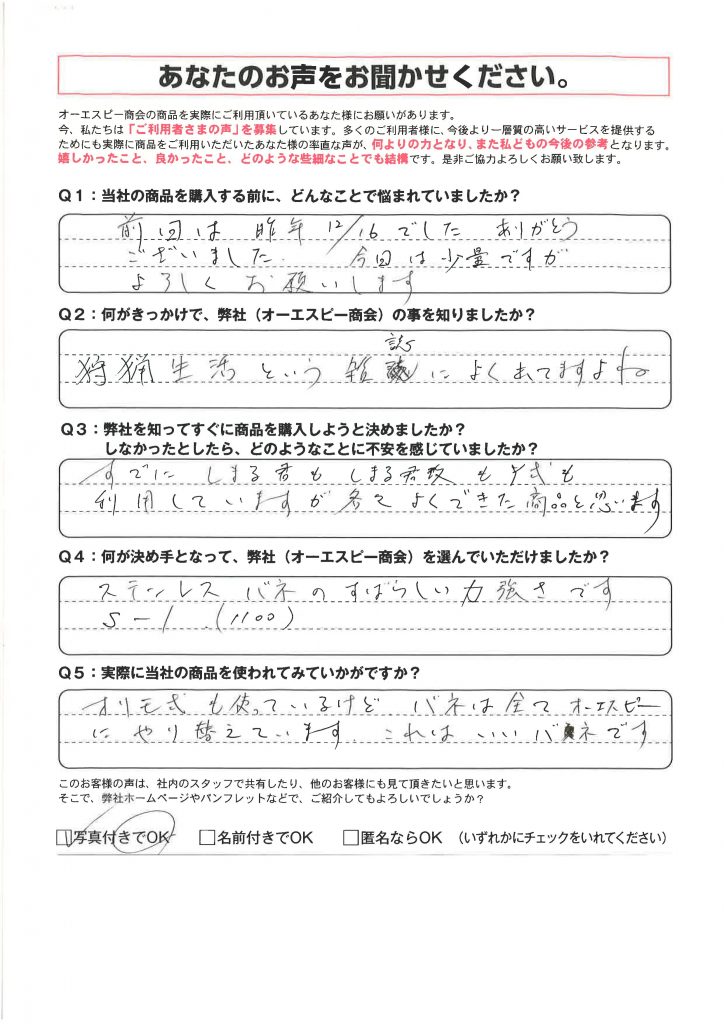 あなたのお声をお聞かせください。
オーエスピー商会の商品を実際にご利用頂いているあなた様にお願いがあります。
今、私たちは「ご利用者さまの声」を募集しています。多くのご利用者様に、今後より一層質の高いサービスを提供する
ためにも実際に商品をご利用いただいたあなた様の率直な声が、何よりの力となり、また私どもの今後の参考となります。
嬉しかったこと、良かったこと、どのような些細なことでも結構です。是非ご協力よろしくお願い致します。
Q1：当社の商品を購入する前に、どんなことで悩まれていましたか？
前回は昨年12/16でした ありがとう
ございました. 今回は少量ですが
よろしくお願いします
Q2：何がきっかけで、弊社（オーエスピー商会）の事を知りましたか？
誌
狩猟生活という雑 によく出てますよね
Q3：弊社を知ってすぐに商品を購入しようと決めましたか？
しなかったとしたら、どのようなことに不安を感じていましたか？
すでにしまる君もしまる君改も 式も
利用していますが各々よくできた商品と思います
Q4：何が決め手となって、弊社（オーエスピー商会）を選んでいただけましたか？
ステンレスバネのすばらしい力強さです
S-1 .(1100)
Q5：実際に当社の商品を使われてみていかがですか？
オリモ式も使っているけど バネは全てオーエスピー
にやり替えています これはいいバネです
このお客様の声は、社内のスタッフで共有したり、他のお客様にも見て頂きたいと思います。
そこで、弊社ホームページやパンフレットなどで、ご紹介してもよろしいでしょうか？
写真付きでOK 名前付きでOK 匿名ならOK （いずれかにチェックをいれてください）